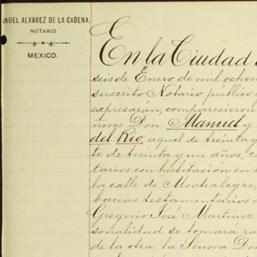 NUEL ALVAREZ DE LA CADENA.
NOTARIO
MEXICO.
En la Ciudad
seis de Enero de mil ocho
suscrito Notario público
expresarán, comparecieron
nores Don Manuel y
del Río, aquel de treinta y
te de treinta y un años, c
tarios con habitacion en
la calle de Montealegre,
baceas testamentarios
Gregorio José Martinez
sonalidad se tomará ra
de la otra, la Señora Do